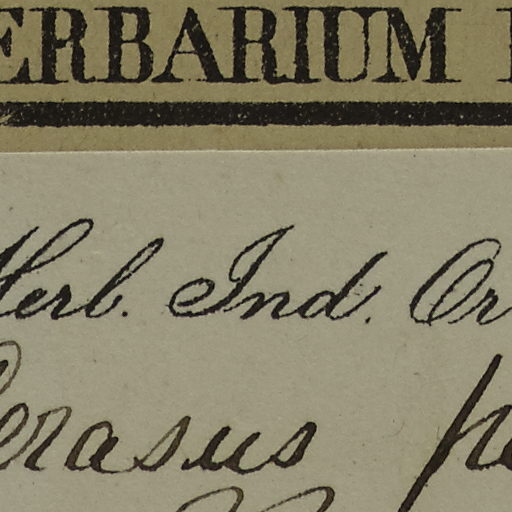 ERBARIUM
Herb. Ind. Or
Cerasus